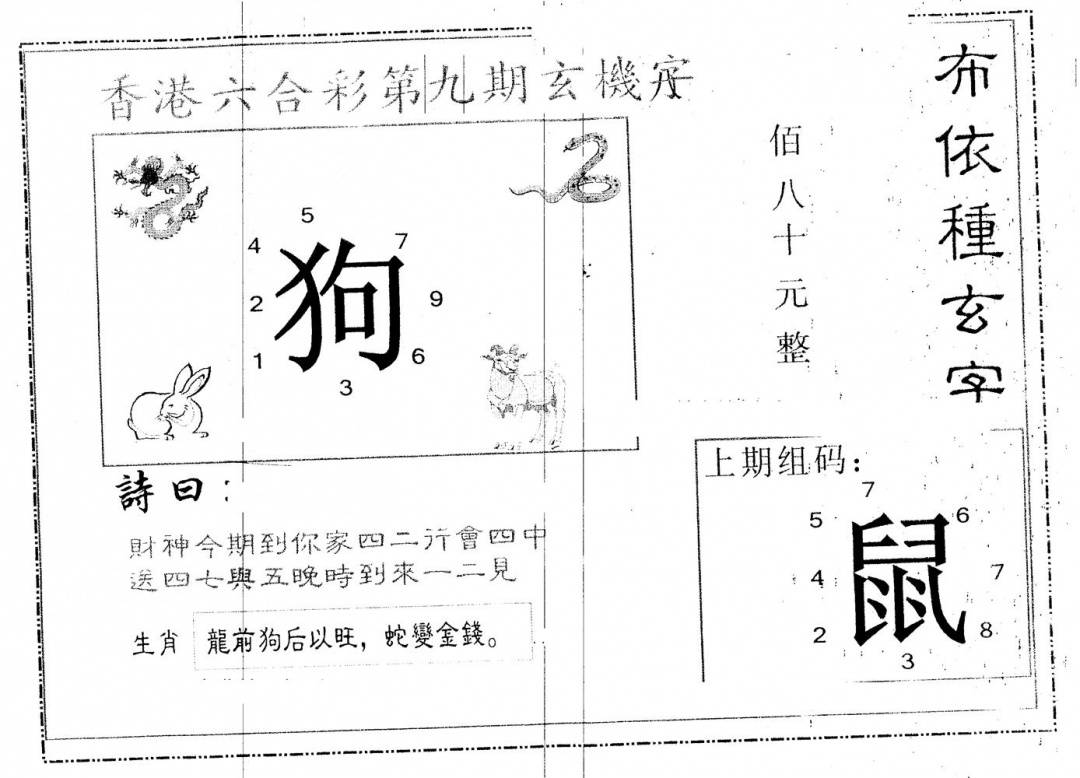 香港六合彩第九期玄機字
布依種玄字
佰八十元整
5
4
7
2
狗
9
1
6
3
詩曰：
財神今期到你家四二行會四中
送四七與五晚時到來一二見
生肖
龍前狗后以旺，蛇變金錢。
上期组码：
7
5
6
鼠
4
7
2
8
3